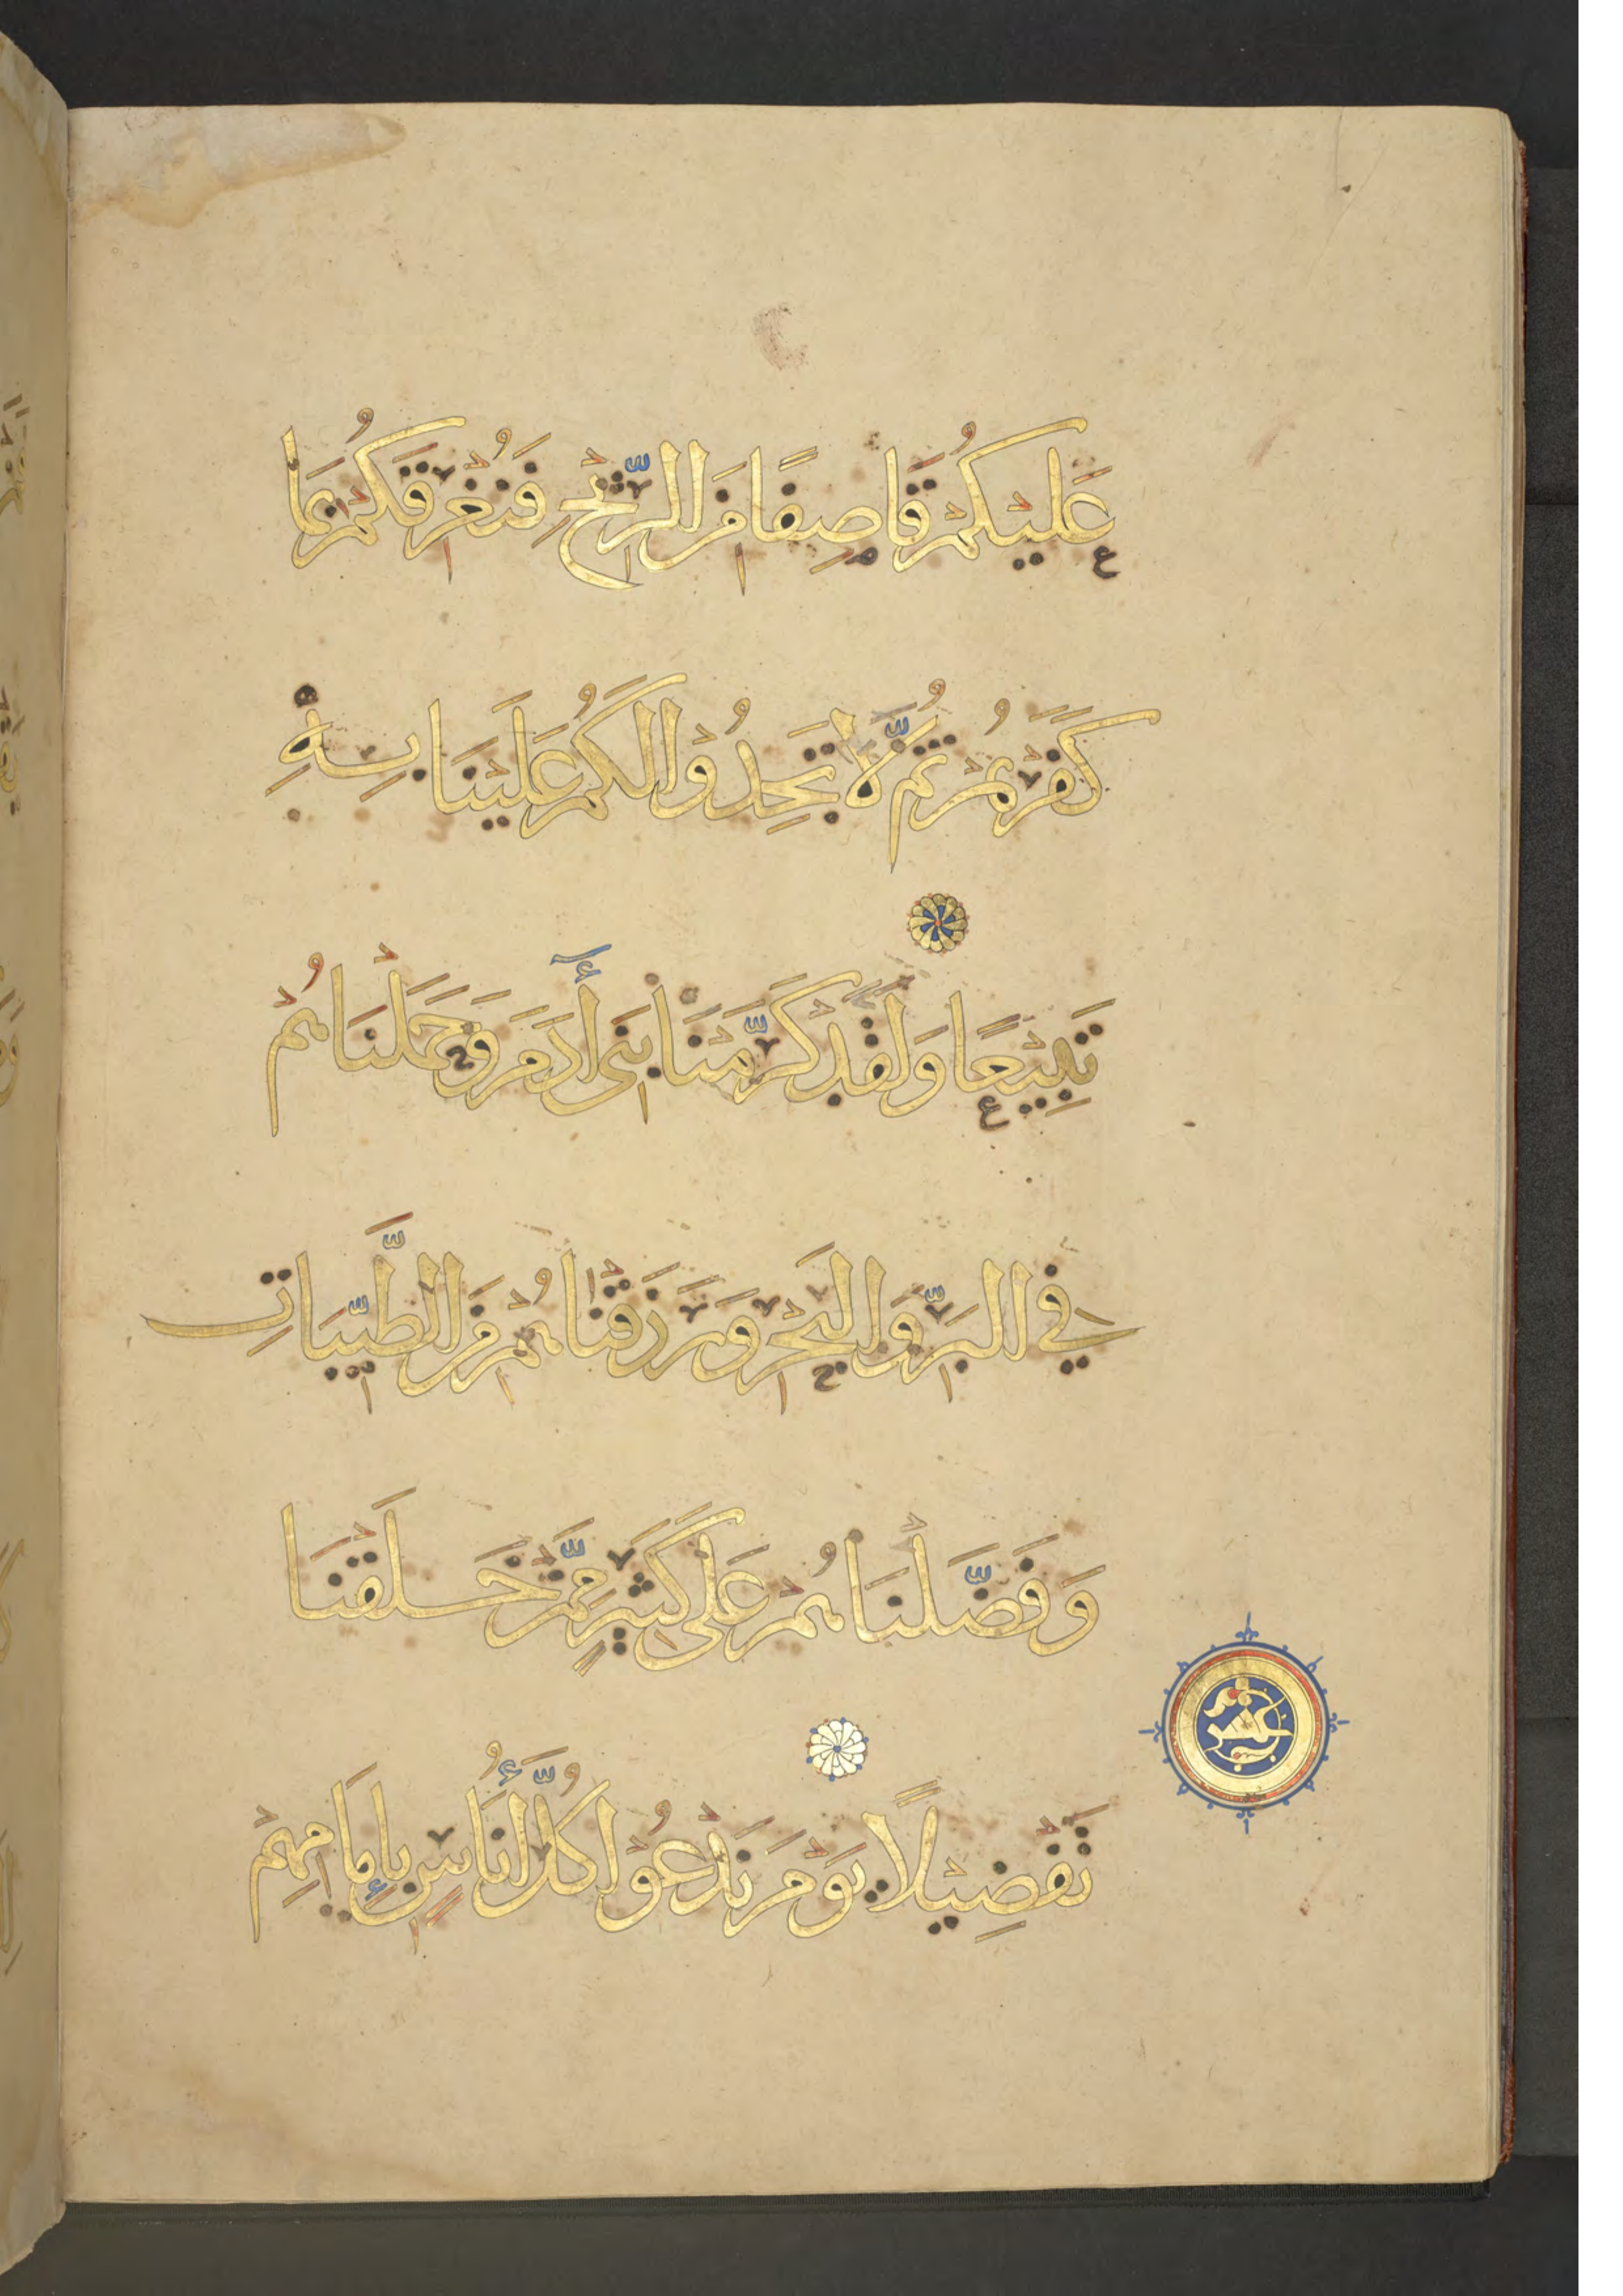 عَلَيْكُمْ قَاصِفًا مِنَ الرِّيْحِ فَنُغْرِقَكُمْ بِمَا
كَفَرْتُمْ ثُمَّ لَا تَجِدُوْا لَكُمْ عَلَيْنَا بِهِ
تَبِيْعًا وَلَقَدْ كَرَّمْنَا بَنِى أٰدَمَ وَحَمَلْنَاهُمْ
فِي الْبَرِّ وَالْبَحْرِ وَرَزَقْنَاهُمْ مِنَ الطَّيِّبَاتِ
وَفَضَّلْنَاهُمْ عَلَى كَثِيرٍ مِمَّنْ خَلَقْنَا
تَفْضِيْلًا يَوْمَ نَدْعُوْا كُلَّ أُنَاسٍ بِإِمَامِهِمْ